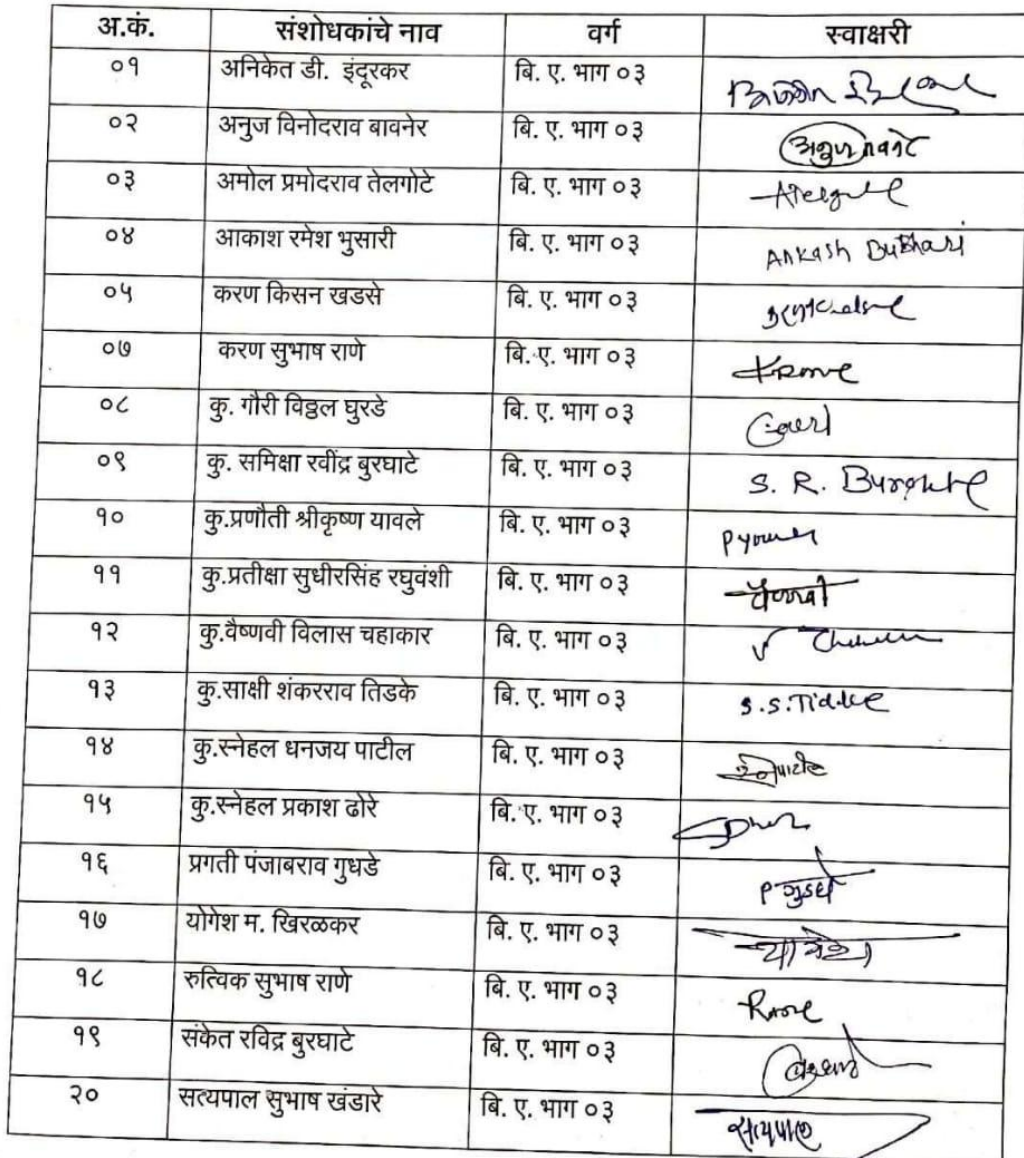 अ.कं. संशोधकांचे नाव वर्ग स्वाक्षरी
०१ अनिकेत डी. इंदूरकर बि. ए. भाग ०३
०२ अनुज विनोदराव बावनेर बि. ए. भाग ०३
०३ अमोल प्रमोदराव तेलगोटे बि. ए. भाग ०३
०४ आकाश रमेश भुसारी बि. ए. भाग ०३
०५ करण किसन खडसे बि. ए. भाग ०३
०७ करण सुभाष राणे बि. ए. भाग ०३
०८ कु. गौरी विठ्ठल घुरडे बि. ए. भाग ०३ Gauri
०९ कु. समिक्षा रवींद्र बुरघाटे बि. ए. भाग ०३ S. R.
१० कु.प्रणौती श्रीकृष्ण यावले बि. ए. भाग ०३
११ कु.प्रतीक्षा सुधीरसिंह रघुवंशी बि. ए. भाग ०३
१२ कु.वैष्णवी विलास चहाकार बि. ए. भाग ०३
१३ कु.साक्षी शंकरराव तिडके बि. ए. भाग ०३ S.S.Tidke
१४ कु.स्नेहल धनजय पाटील बि. ए. भाग ०३
१५ कु.स्नेहल प्रकाश ढोरे बि. ए. भाग ०३
१६ प्रगती पंजाबराव गुधडे बि. ए. भाग ०३
१७ योगेश म. खिरळकर बि. ए. भाग ०३
१८ रुत्विक सुभाष राणे बि. ए. भाग ०३ Rane
१९ संकेत रविद्र बुरघाटे बि. ए. भाग ०३
२० सत्यपाल सुभाष खंडारे बि. ए. भाग ०३ सत्यपाल